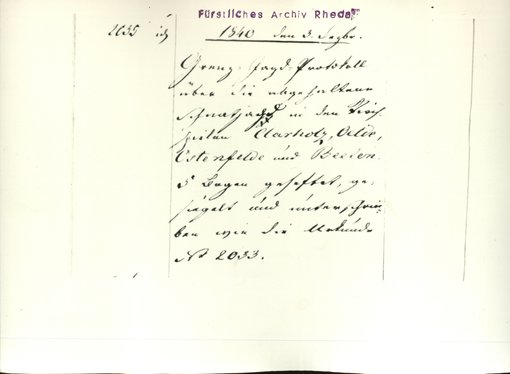 Fürstliches Archiv Rheda
2035
1840 den 3. Dezbr.
Grenz-Jagd-Protokoll
über die abgehaltene
Schnatjagd in den Kirch-
spielen Clarholz, Oelde,
Ostenfelde und Beelen.
5 Bogen geheftet, ge-
siegelt und unterschrie-
ben wie die Urkunde
No 2033.